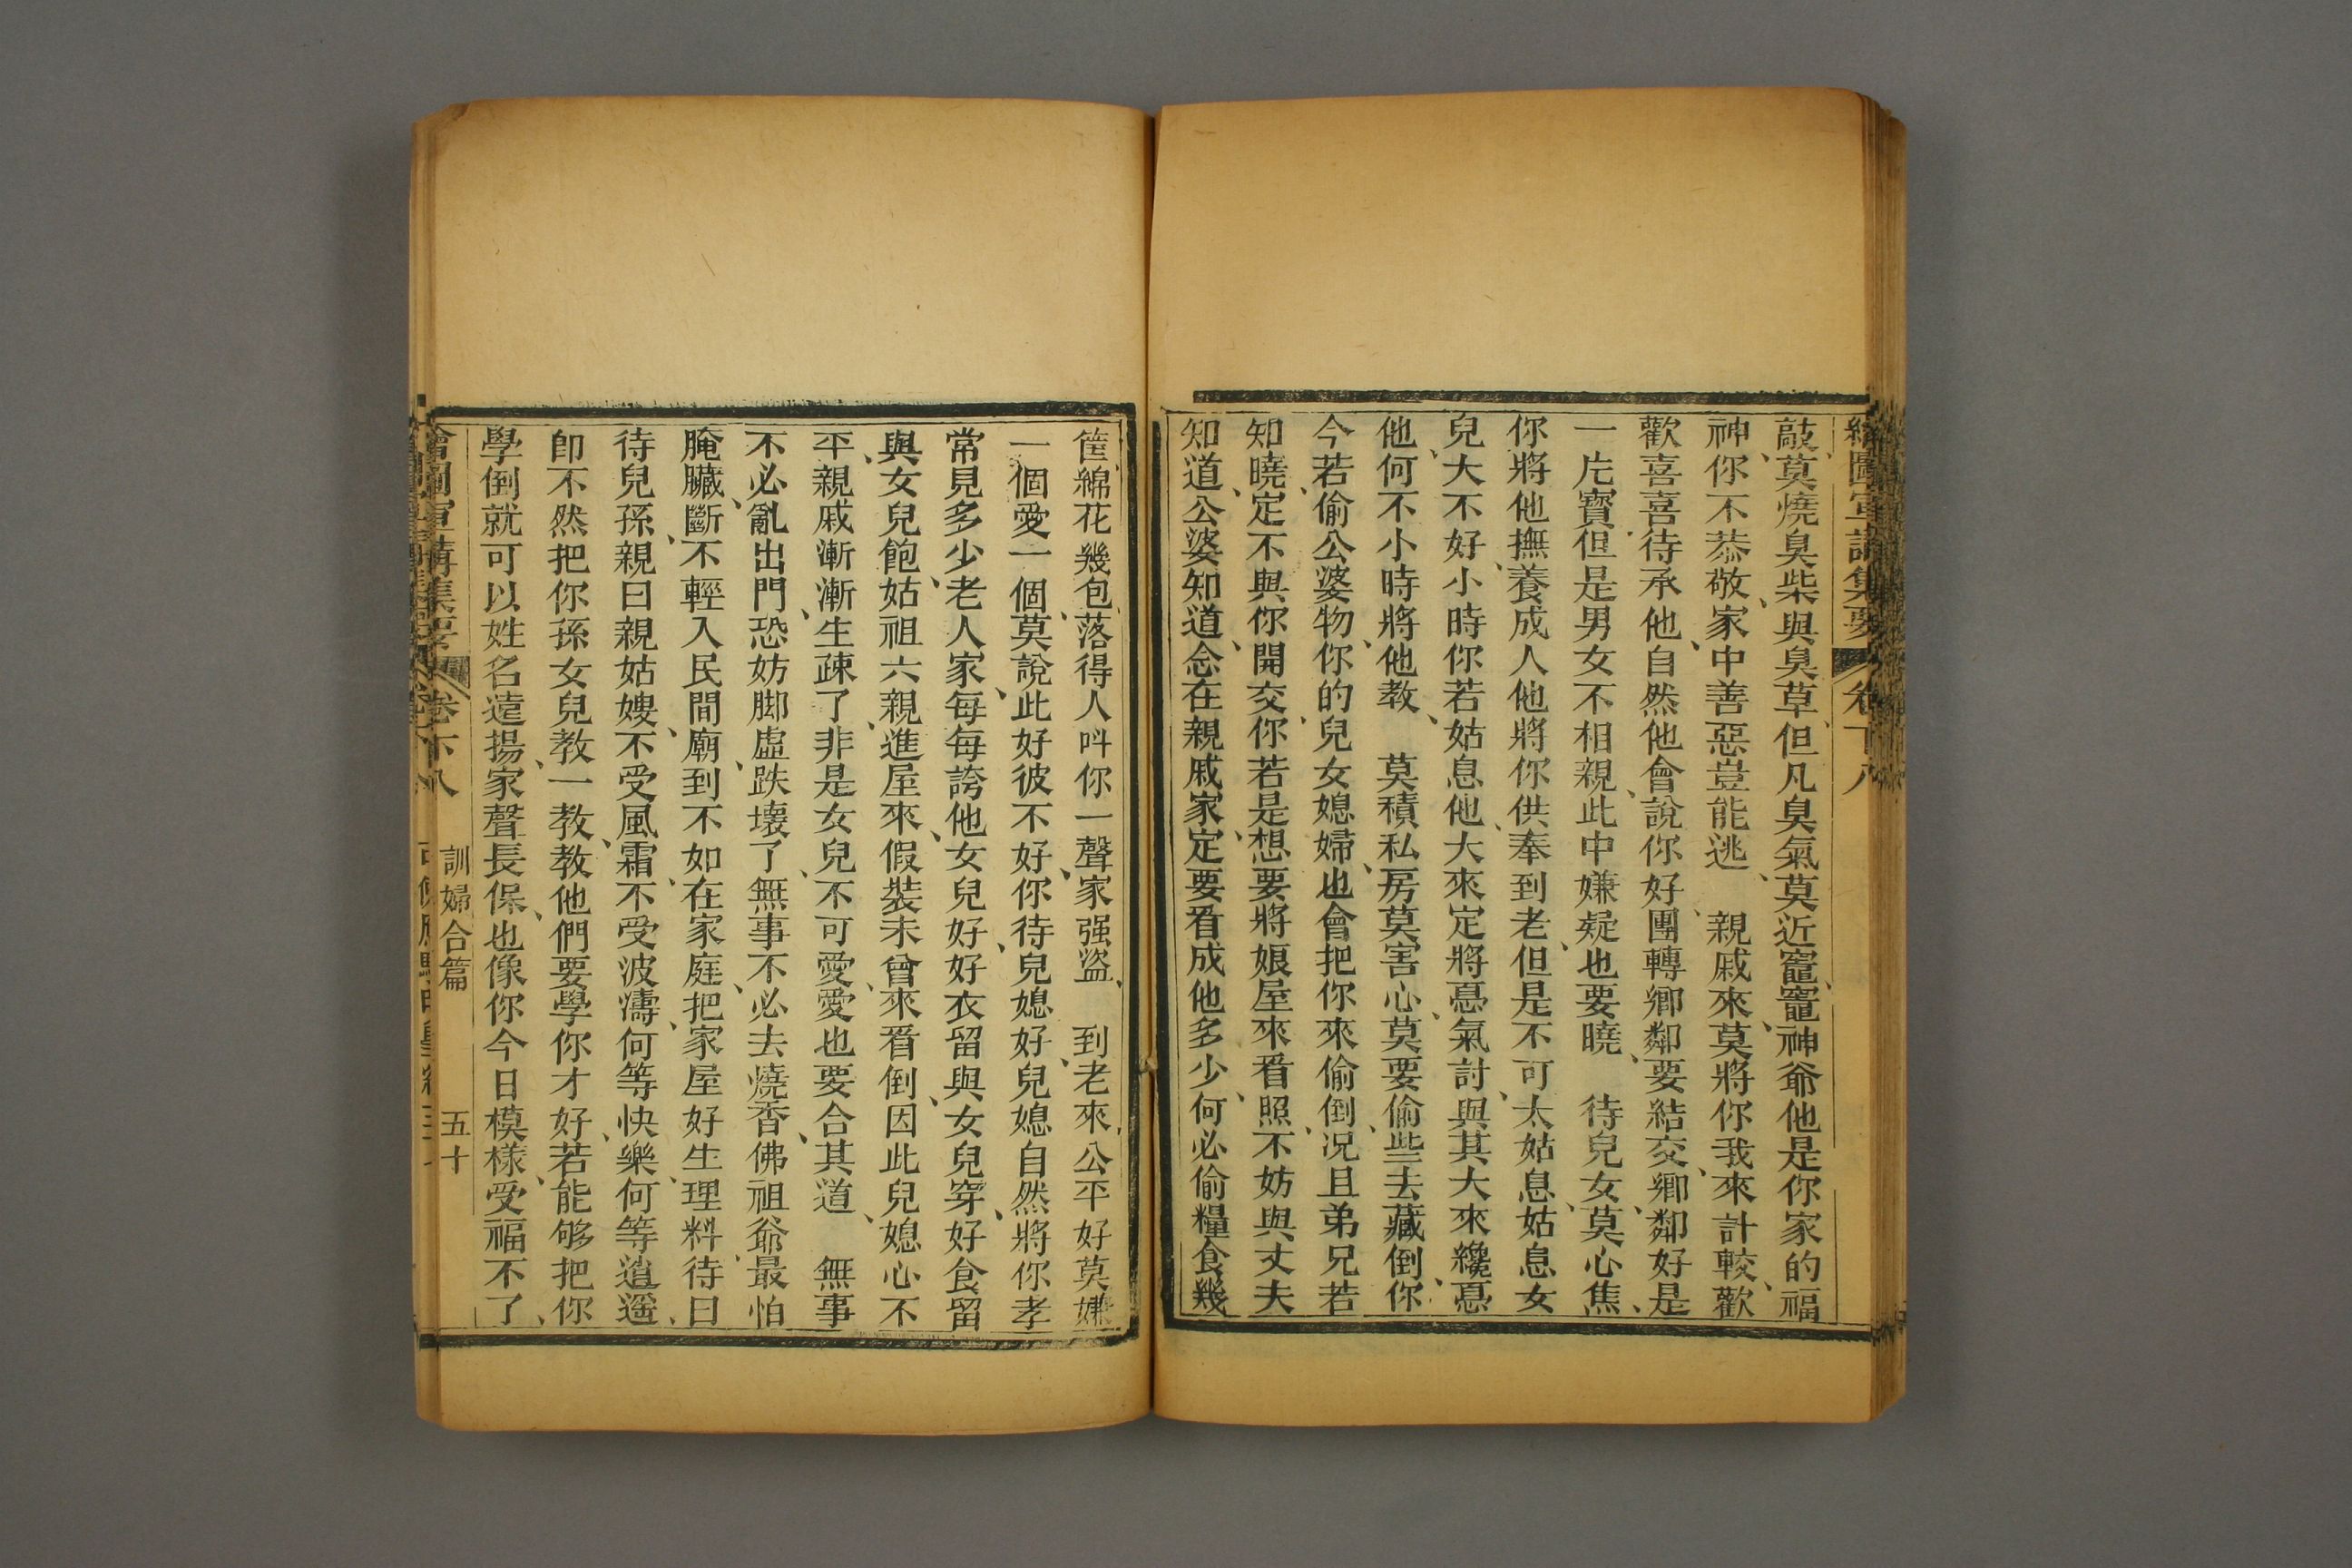 繪圖宣講集要 卷下八
敲、莫燒臭柴與臭草、但凡臭氣莫近竈、竈神爺他是你家的福
神、你不恭敬、家中善惡豈能逃、 親戚來、莫將你我來計較、歡
歡喜喜待承他、自然他會說你好、團轉鄉鄰要結交、鄉鄰好是
一片寶、但是男女不相親、此中嫌疑也要曉、 待兒女、莫心焦、
你將他撫養成人、他將你供奉到老、但是不可太姑息、姑息女
兒大不好、小時你若姑息他、大來定將惪氣討、與其大來纔惪
他、何不小時將他教、 莫積私房莫害心、莫要偷些去藏倒、你
今若偷公婆物、你的兒女媳婦、也會把你來偷倒、况且弟兄若
知曉、定不與你開交、你若是想要將娘屋來看照、不妨與丈夫
知道、公婆知道、念在親戚家、定要看成他多少、何必偷糧食幾
筐、綿花幾包、落得人呌你一聲家强盜、 到老來、公平好、莫嫌
一個愛一個、莫說此好彼不好、你待兒媳好、兒媳自然將你孝
常見多少老人家、每每誇他女兒好、好衣留與女兒穿、好食留
與女兒飽、姑祖六親進屋來、假裝未曾來看倒、因此兒媳心不
平、親戚漸漸生疎了、非是女兒不可愛、愛也要合其道、 無事
不必亂出門、恐妨脚虛跌壞了、無事不必去燒香、佛祖爺最怕
腌臟、斷不輕入民間廟、到不如在家庭、把家屋好生理料、待曰
待兒孫、親曰親姑嫂、不受風霜、不受波濤、何等快樂、何等逍遥、
卽不然把你孫女兒教一教、教他們要學你才好、若能够把你
學倒、就可以姓名遠揚、家聲長保、也像你今日模樣、受福不了、
繪圖宣講集要 卷下八 訓婦合篇 五十